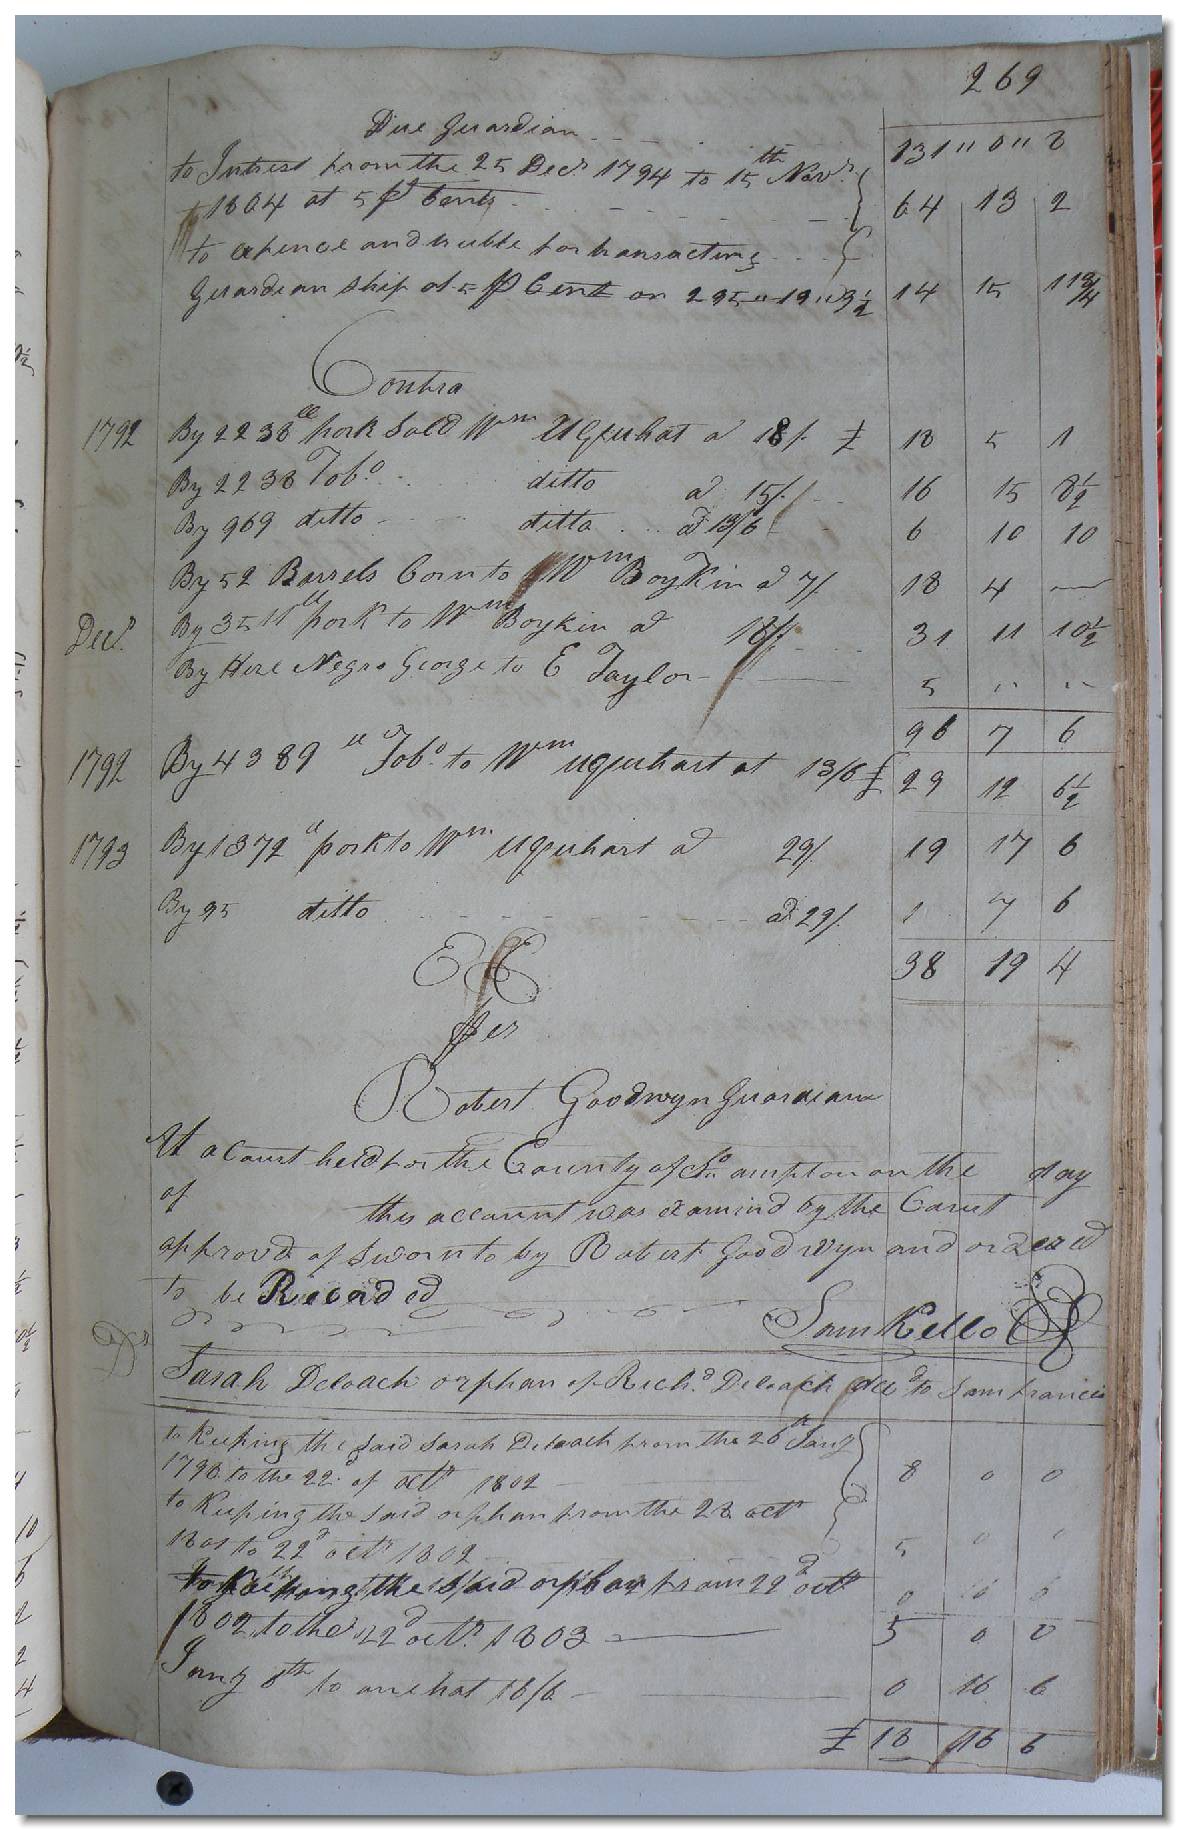 269
Due Guardian 131 " 0 " 8
to Intrest from the 25 Decr 1794 to 15th Novr
to 1804 at 5 P Cents 64 13 2
to expence and truble for transacting
Guardian ship at 5 P Cent on 295 " 19 " 9 1/2 14 15 11 3/4
Contra
1792 By 2238 ll pork Sold Wm Uquhat a 18/. £ 18 5 1
By 2238 Tobo ditto a 15/. 16 15 8 1/2
By 969 ditto ditto a 13/6 6 10 10
By 52 Barrels Corn to Wm Boykin a 7/. 18 4 —
Decr By 3511 ll pork to Wm Boykin a 18/. 31 11 10 1/2
By Hire Negro George to E Taylor 5 " "
96 7 6
1792 By 4389 ll Tobo to Wm uquhart at 13/6 £ 29 12 6 1/2
1793 By 1372 ll pork to Wm uquhart a 29/. 19 17 6
By 95 ditto a 29/. 1 7 6
38 19 4
EE
Per
Robert Goodwyn Guardian
At a Court held for the County of Soampton on the day
of this account was examind by the Court
approvd of sworn to by Robert Goodwyn and ordered
to be Recorded
Sam Kello
Dr
Sarah Deloach orphan of Richd Deloach decd to Sam Francis
to Keeping the said Sarah Deloach from the 26th Jany
1798 to the 22d of octr 1802 8 0 0
to Keeping the said orphan from the 23 octr
1801 to 22d octr 1802 5 0 0
to Keeping the said orphan from 22d octr 0 16 6
1802 to the 22d octr 1803 5 0 0
Jany 8th to one hat 16/6 0 16 6
£ 18 16 6